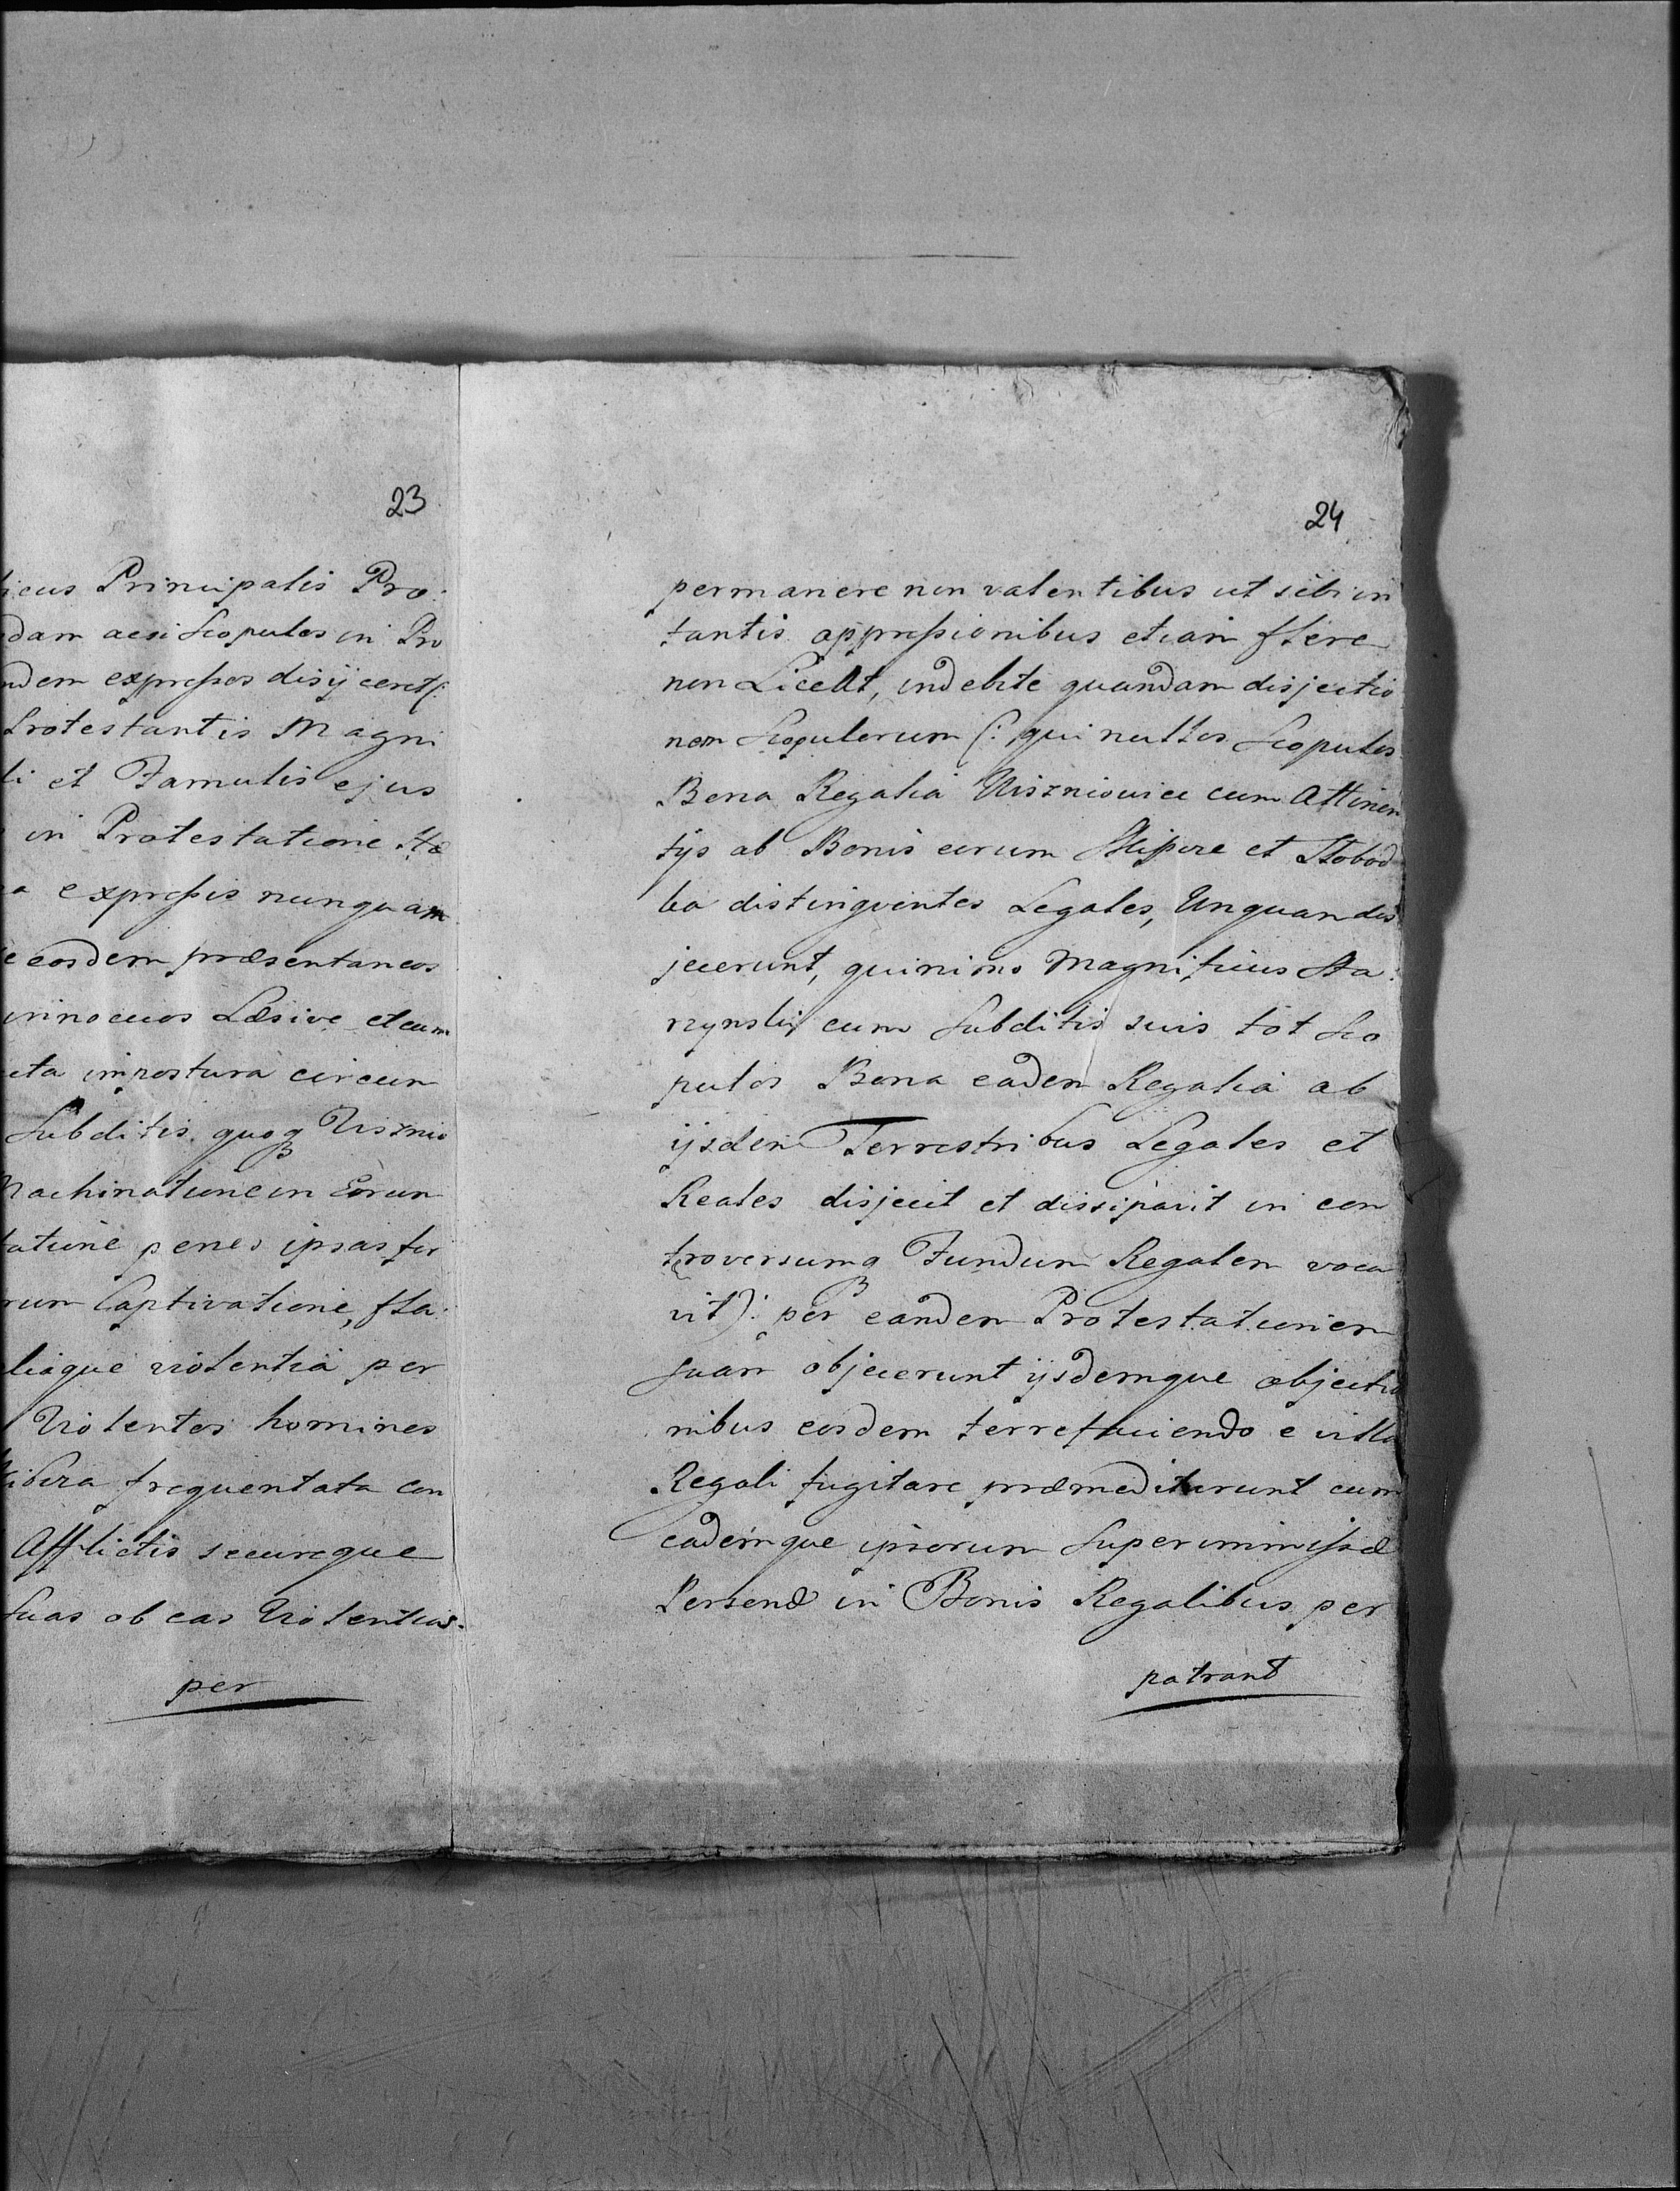 23
icus Principalis Pro:
dam acsi Scopulos in Pro
ndem expressos disijceret (:
Protestantis Magni
li et Famulis ejus
in Protestatione
a expressis nunquam
e eosdem præsentaneos
innocuos Læsive et cum
cta impostura circum
Subditis quoq Uisznio
Machinatione in Eorun
tatione penes ipsas for
rum Captivatione, fla:
liaque violentia per
Violentos homines
libera frequentata con
Afflictis secureque
Suas ob eas Violentias.
per
24
permanere non valentibus ut sibi in
tantis oppressionibus etiam flere
non Liceat, indebite quandam disjectio
nem Scopulorum (: qui nullos Scopulos
Bona Regalia Uiszniowice cum Attinen
tijs ab Bonis eorum et Slobod
ka distingventes Legales, Unquam dis
jecerunt, quinimo Magnificus Sta:
rzynskij cum Subditis suis tot Sco
pulos Bona eadem Regalia ab
ijsdem Terrestribus Legales et
Reales disjecit et dissipavit in con
troversumq Fundum Regalem voca
vit): per eandem Protestationem
Suam objecerunt ijsdemque objectio
nibus eosdem terrefaciendo e villa
Regali fugitare præmeditarunt cum
eademque ipsorum Superimmissæ
Personæ in Bonis Regalibus per
patrant